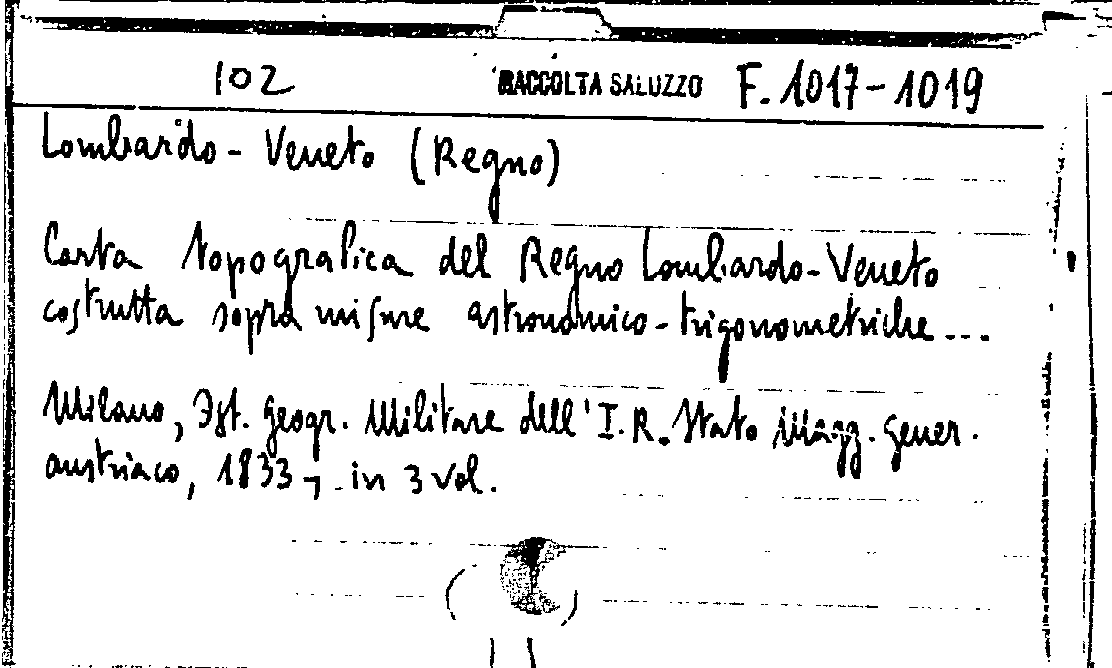 102 RACCOLTA SALUZZO F. 1017-1019
Lombardo-Veneto (Regno)
Carta topografica del Regno Lombardo-Veneto
costrutta sopra misure astronomico-trigonometriche ...
Milano, Ist. Geogr. Militare dell'I.R. Stato Magg. Gener.
austriaco, 1833, in 3 vol.